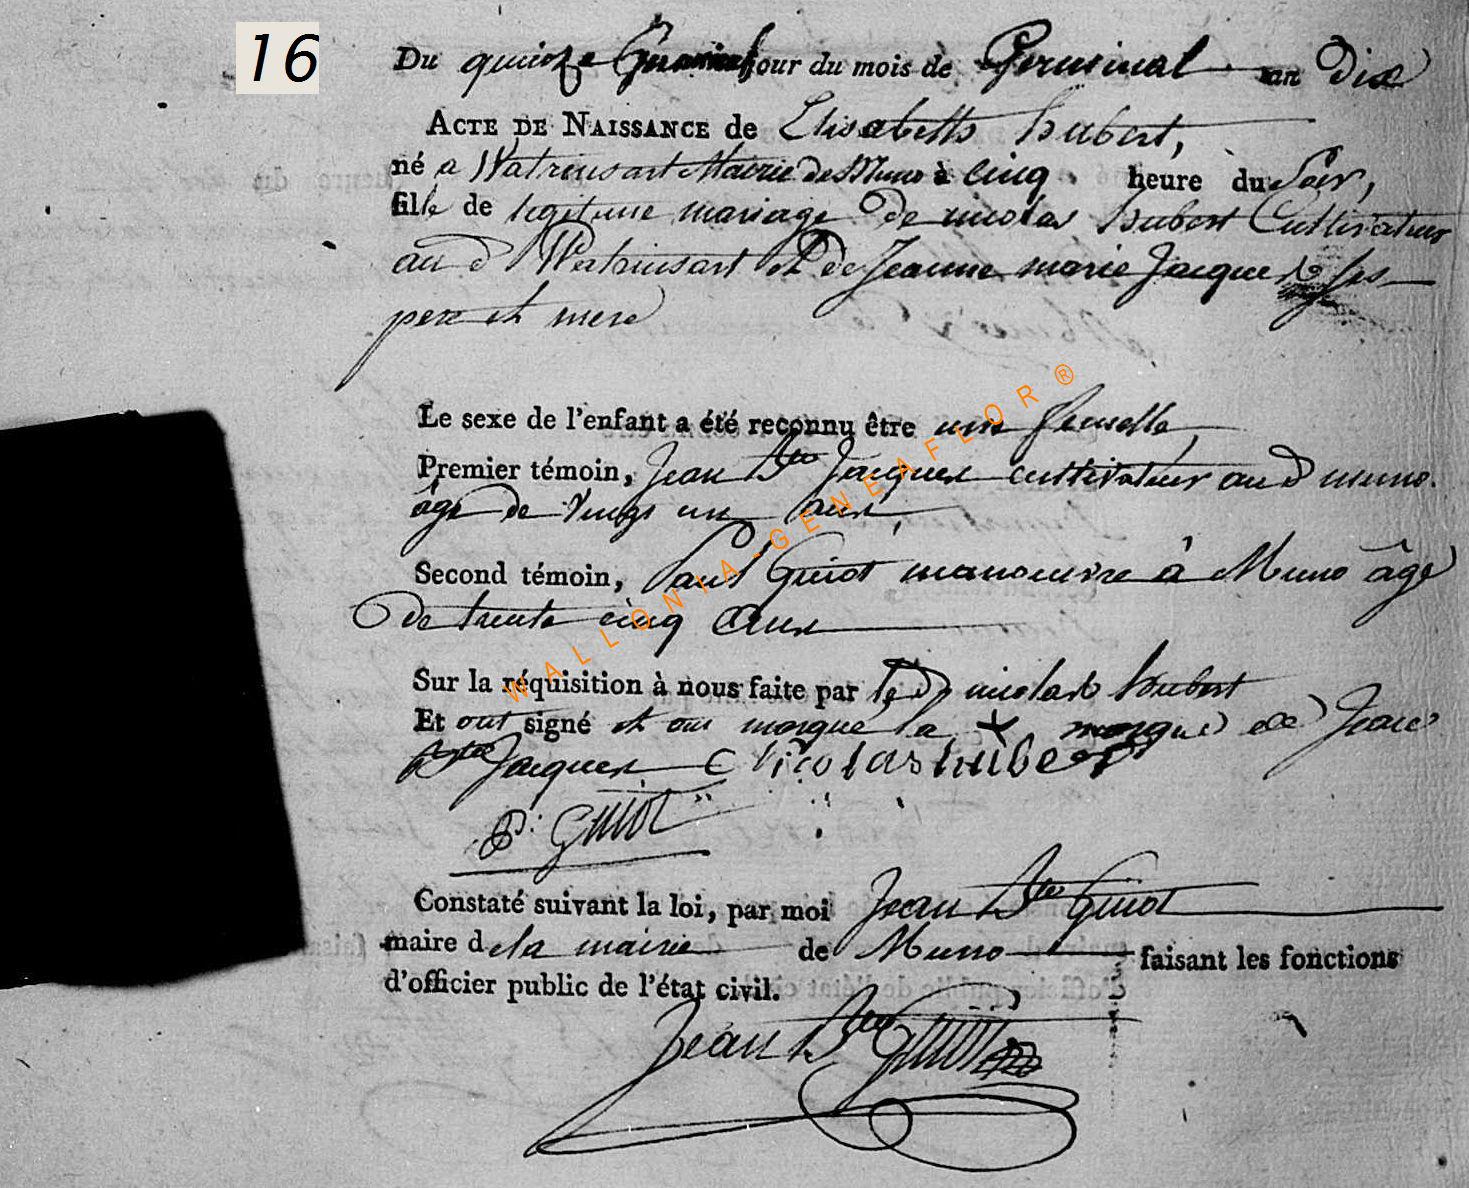 16
Du quinze jour du mois de Germinal an dix
ACTE DE NAISSANCE de Elisabeth hubert,
né a Watrinsart Mairie de Muno à cinq heure du Soir,
fille de legitime mariage De nicolas hubert Cultivateur
au d Watrinsart et de Jeanne marie Jacques ses
pere et mere
Le sexe de l'enfant a été reconnu être une femelle,
Premier témoin, Jean Bte Jacques cultivateur au d muno.
âgé de vingt un ans,
Second témoin, Paul Guiot manouvre à Muno âgé
De trente cinq ans
Sur la réquisition à nous faite par le d nicolas hubert
Et ont signé et ont marque la + marque de Jean
Bte Jacques Nicolas hubert
P. Guiot
Constaté suivant la loi, par moi Jean Bte Guiot
maire de la mairie de Muno faisant les fonctions
d'officier public de l'état civil.
Jean Bte Guiot
WALLONIA-GENEAFLOR®